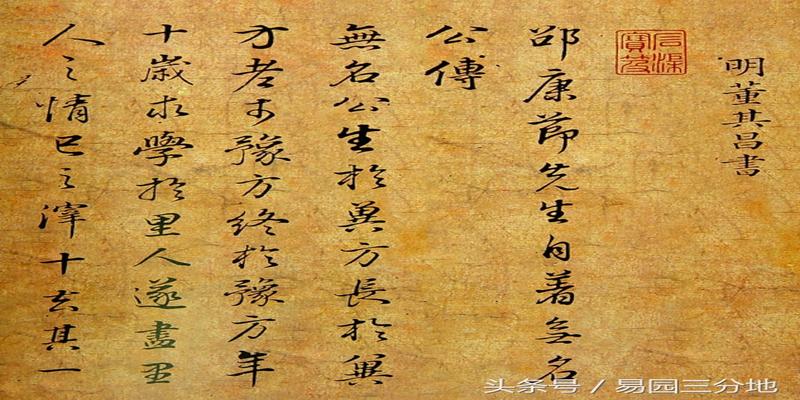 明董其昌書
石渠寶笈
邵康節先生自著無名
公傳
無名公生於冀方長於冀
方老于豫方終於豫方年
十歲求學於里人遂盡里
人之情己之滓十去其一
头条号 / 易园三分地